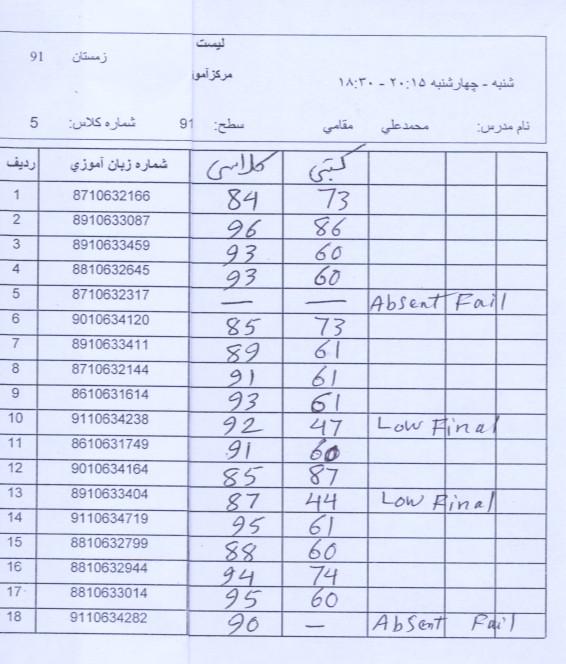 لیست
زمستان 91
مرکز آمو
شنبه - چهارشنبه ۲۰:۱۵ - ۱۸:۳۰
نام مدرس: محمدعلي مقامي سطح: 91 شماره کلاس: 5
ردیف شماره زبان آموزي کلاسی کتبی
1 8710632166 84 73
2 8910633087 96 86
3 8910633459 93 60
4 8810632645 93 60
5 8710632317 — — Absent Fail
6 9010634120 85 73
7 8910633411 89 61
8 8710632144 91 61
9 8610631614 93 61
10 9110634238 92 47 Low Final
11 8610631749 91 60
12 9010634164 85 87
13 8910633404 87 44 Low Final
14 9110634719 95 61
15 8810632799 88 60
16 8810632944 94 74
17 8810633014 95 60
18 9110634282 90 — Absent Fail